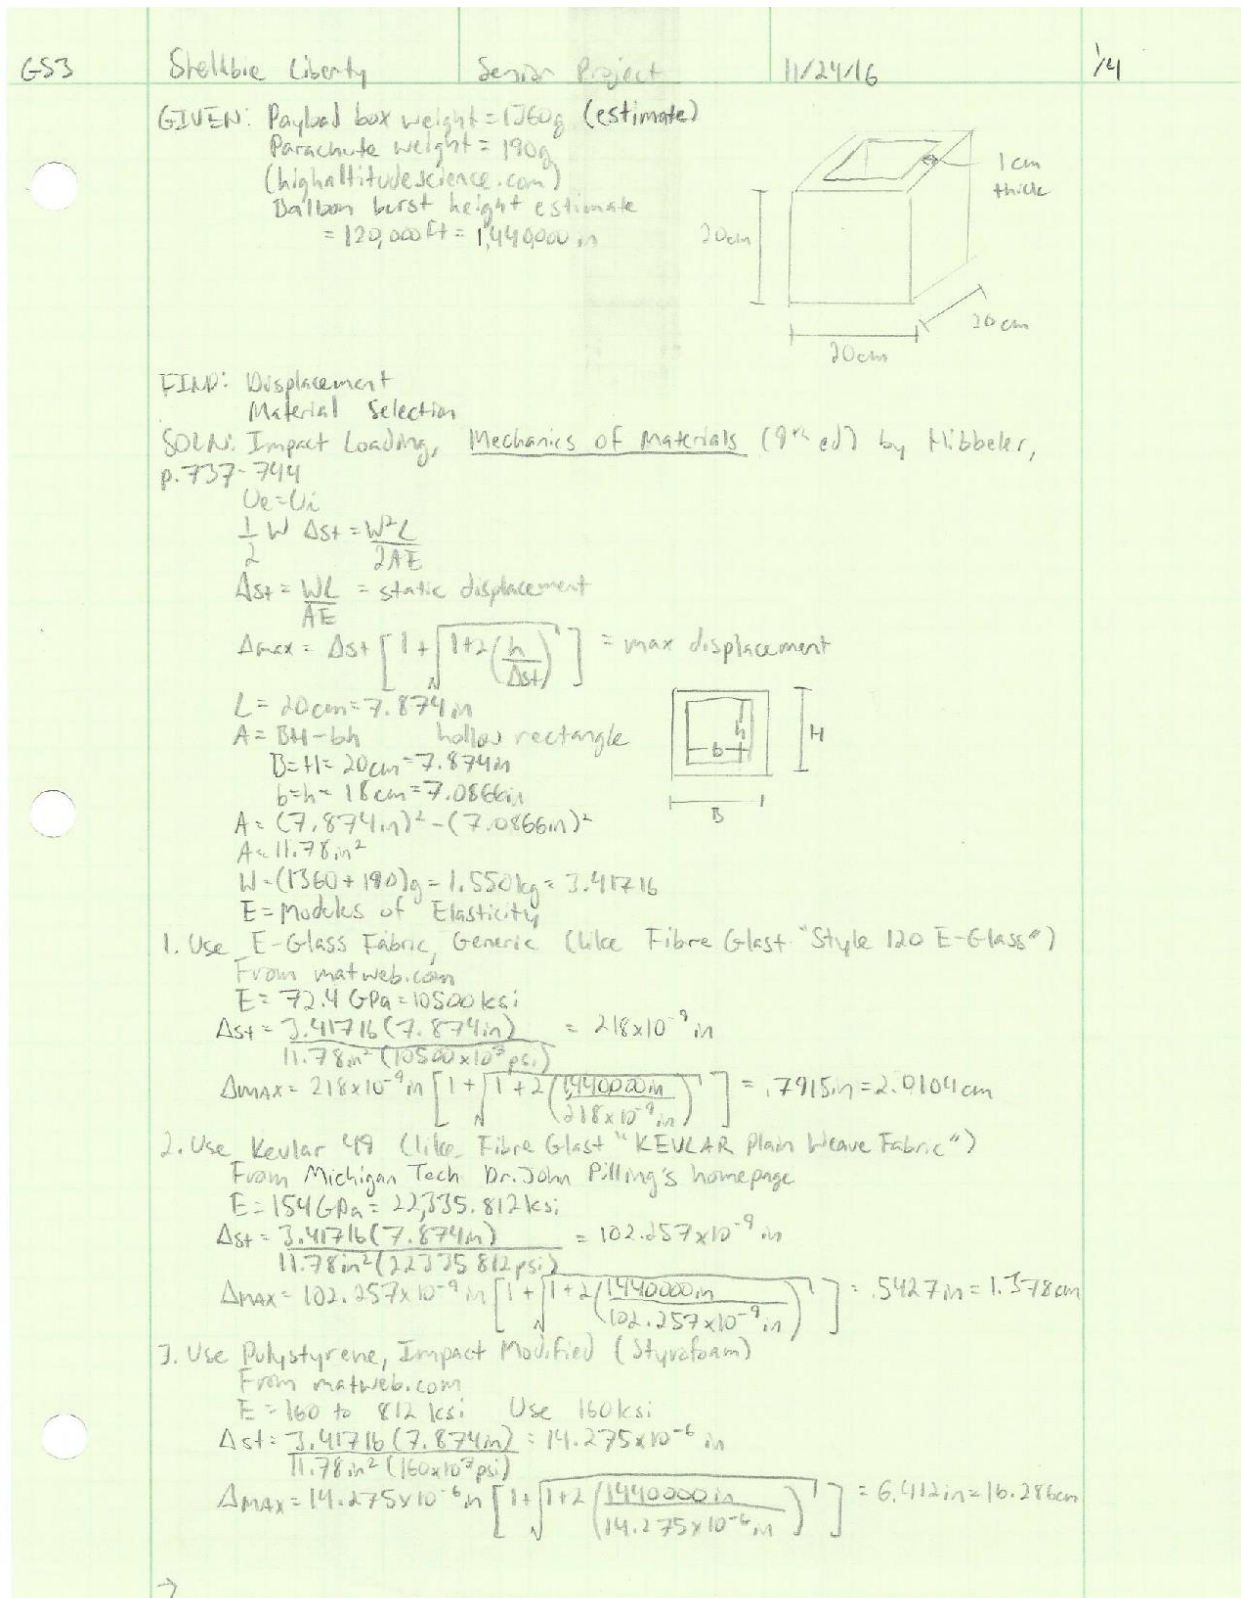 GS3 Stellbie Liberty Senior Project 11/24/16 1/4
GIVEN: Payload box weight = 1360g (estimate)
Parachute weight = 190g
(highaltitudescience.com)
Balloon burst height estimate
= 120,000 ft = 1,440,000 in
1 cm
thick
20cm
20cm
20cm
FIND: Displacement
Material Selection
SOLN: Impact Loading, Mechanics of Materials (9th ed) by Hibbeler,
p.737-744
Ue = Ui
1/2 W Δst = W²L/2AE
Δst = WL/AE = static displacement
Δmax = Δst [1+√(1+2(h/Δst))] = max displacement
L = 20cm = 7.874in
A = BH-bh hollow rectangle
B=H= 20cm = 7.874in
b=h= 18cm = 7.0866in
b h H B
A = (7.874in)² - (7.0866in)²
A = 11.78in²
W = (1360+190)g = 1.550kg = 3.417lb
E = Modulus of Elasticity
1. Use E-Glass Fabric, Generic (like Fibre Glast "Style 120 E-Glass")
From matweb.com
E = 72.4 GPa = 10500 ksi
Δst = 3.417lb(7.874in)/11.78in²(10500x10³psi) = 218x10⁻⁹in
ΔMAX = 218x10⁻⁹in [1+√(1+2(1440000in/218x10⁻⁹in))] = .7915in = 2.0104cm
2. Use Kevlar 49 (like Fibre Glast "KEVLAR Plain Weave Fabric")
From Michigan Tech Dr. John Pilling's homepage
E = 154GPa = 22,335.812ksi
Δst = 3.417lb(7.874in)/11.78in²(22335812psi) = 102.257x10⁻⁹in
ΔMAX = 102.257x10⁻⁹in [1+√(1+2(1440000in/102.257x10⁻⁹in))] = .5427in = 1.378cm
3. Use Polystyrene, Impact Modified (Styrofoam)
From matweb.com
E = 160 to 812 ksi Use 160ksi
Δst = 3.417lb(7.874in)/11.78in²(160x10³psi) = 14.275x10⁻⁶in
ΔMAX = 14.275x10⁻⁶in [1+√(1+2(1440000in/14.275x10⁻⁶in))] = 6.412in = 16.286cm
→